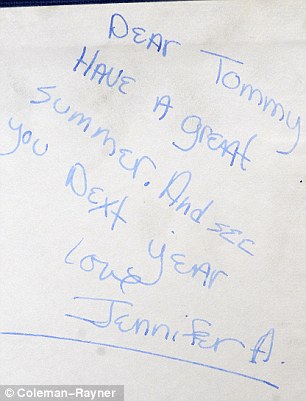 DEAR Tommy
HAVE A great
summer. And see
you Next YEAR
Love
Jennifer A.
© Coleman-Rayner